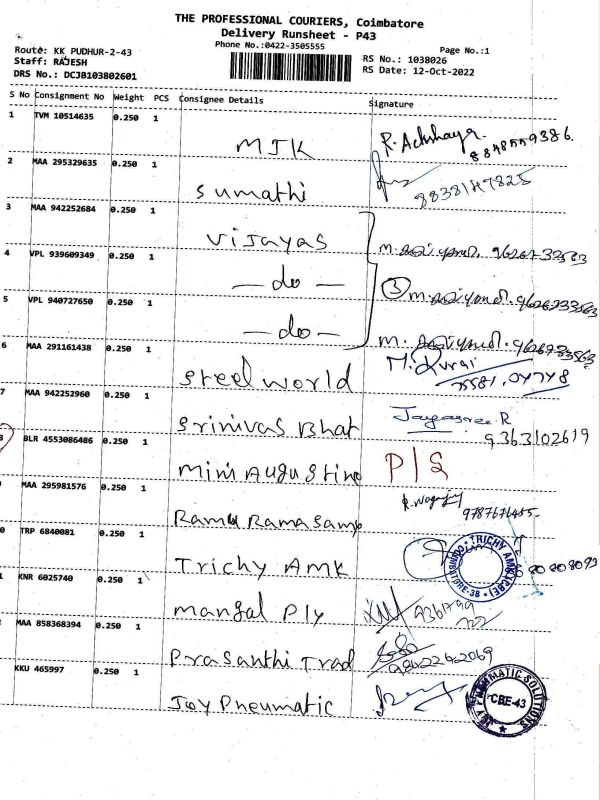 THE PROFESSIONAL COURIERS, Coimbatore
Delivery Runsheet - P43
Phone No.:0422-3505555
Page No.:1
Route: KK PUDHUR-2-43
Staff: RAJESH
DRS No.: DCJB103802601
RS No.: 1038026
RS Date: 12-Oct-2022
S No Consignment No Weight PCS Consignee Details Signature
1 TVM 10514635 0.250 1
MJK R. Achshaya. 8848559386.
2 MAA 295329635 0.250 1
Sumathi 8838147825
3 MAA 942252684 0.250 1
Vijayas
4 VPL 939609349 0.250 1
—do— 3
5 VPL 940727650 0.250 1
—do—
6 MAA 291161438 0.250 1
Steel World M. Durai
7 MAA 942252960 0.250 1
Srinivas Bhat Jayasree.R 9363102619
8 BLR 4553086486 0.250 1
Mini Augustine P/S
MAA 295981576 0.250 1
Ramu Ramasamy 9787671455
0 TRP 6840081 0.250 1
Trichy AMK
1 KNR 6025740 0.250 1
Mangal Ply
MAA 858368394 0.250 1
Prasanthi Trad 9842242069
KKU 465997 0.250 1
Joy Pneumatic
JOY PNEUMATIC SOLUTIONS
CBE-43